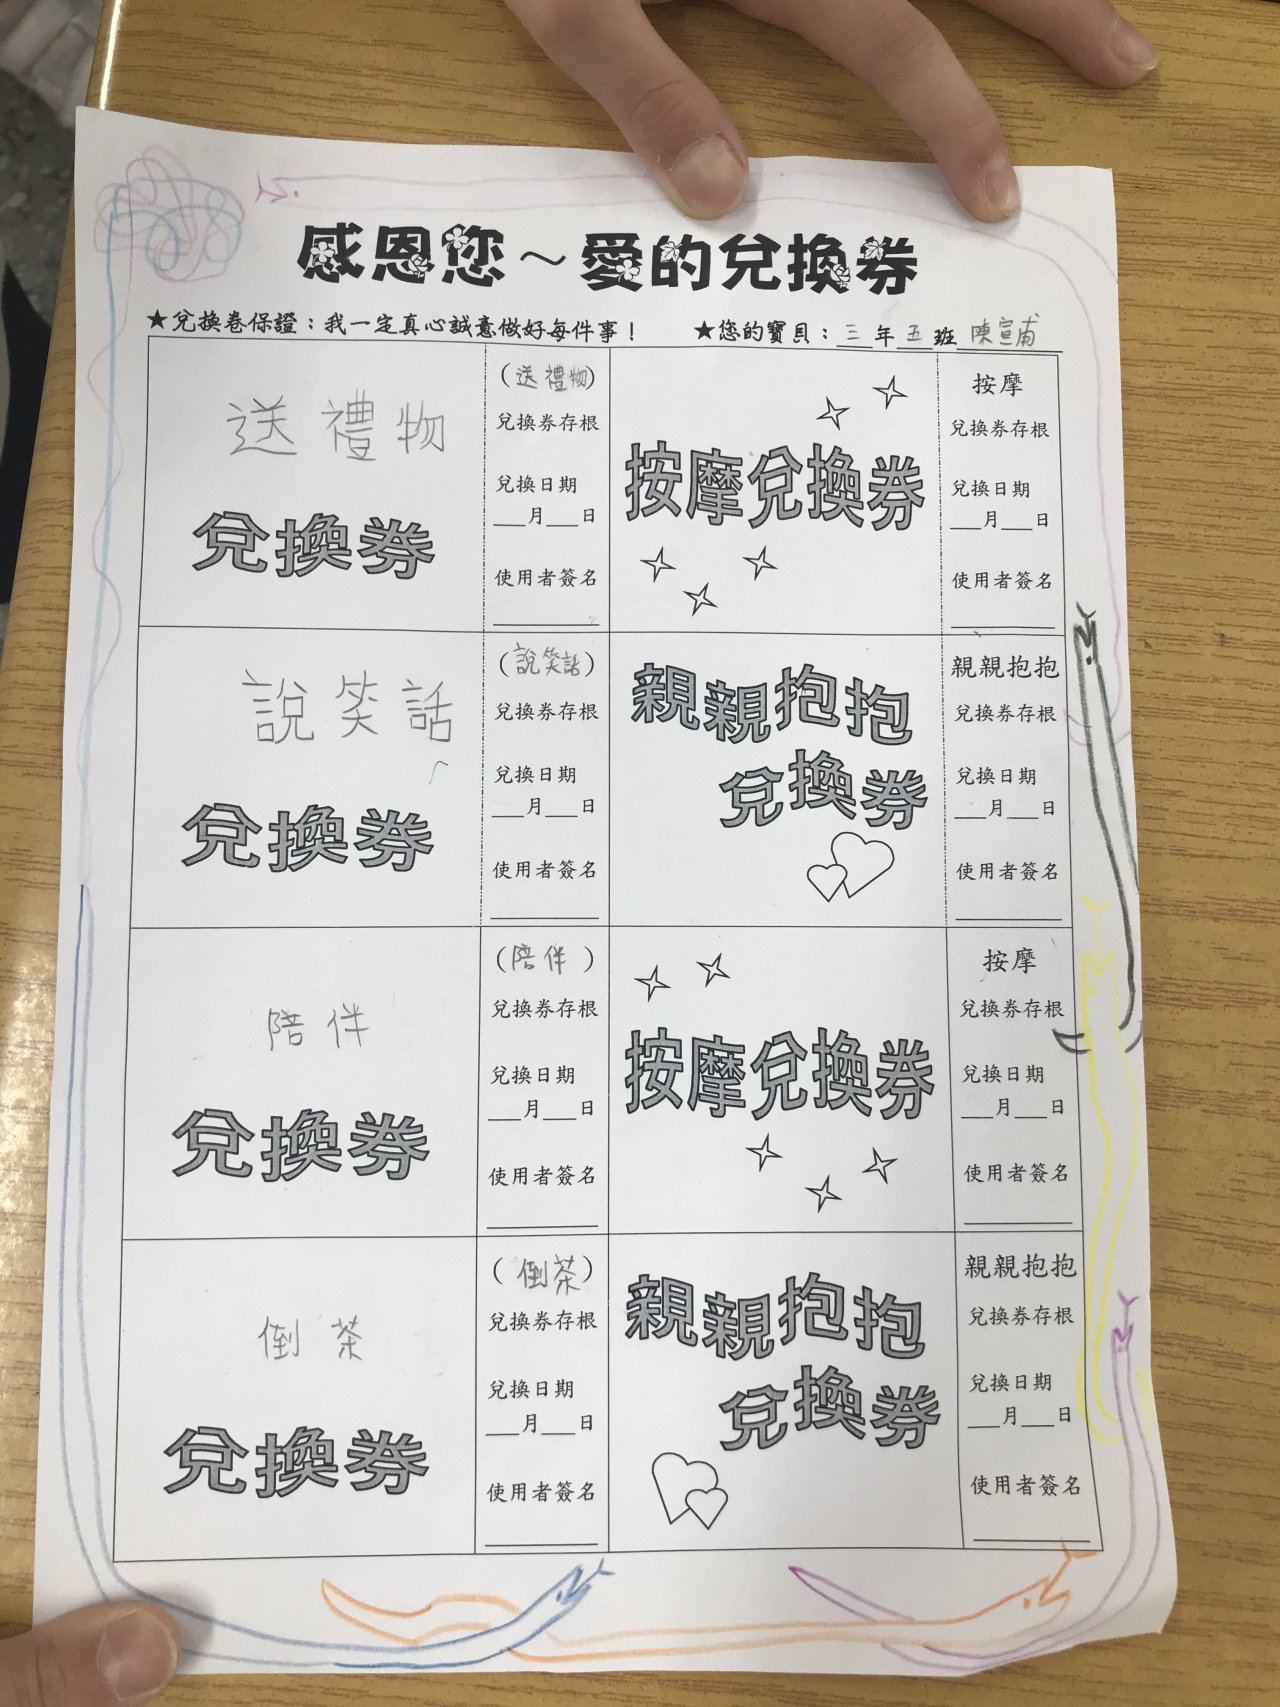 感恩您～愛的兌換券
★兌換卷保證：我一定真心誠意做好每件事！ ★您的寶貝：三年五班陳宣甫
送禮物
兌換券
（送禮物）
兌換券存根
兌換日期
___月___日
使用者簽名
按摩兌換券
按摩
兌換券存根
兌換日期
___月___日
使用者簽名
說笑話
兌換券
（說笑話）
兌換券存根
兌換日期
___月___日
使用者簽名
親親抱抱
兌換券
親親抱抱
兌換券存根
兌換日期
___月___日
使用者簽名
陪伴
兌換券
（陪伴）
兌換券存根
兌換日期
___月___日
使用者簽名
按摩兌換券
按摩
兌換券存根
兌換日期
___月___日
使用者簽名
倒茶
兌換券
（倒茶）
兌換券存根
兌換日期
___月___日
使用者簽名
親親抱抱
兌換券
親親抱抱
兌換券存根
兌換日期
___月___日
使用者簽名